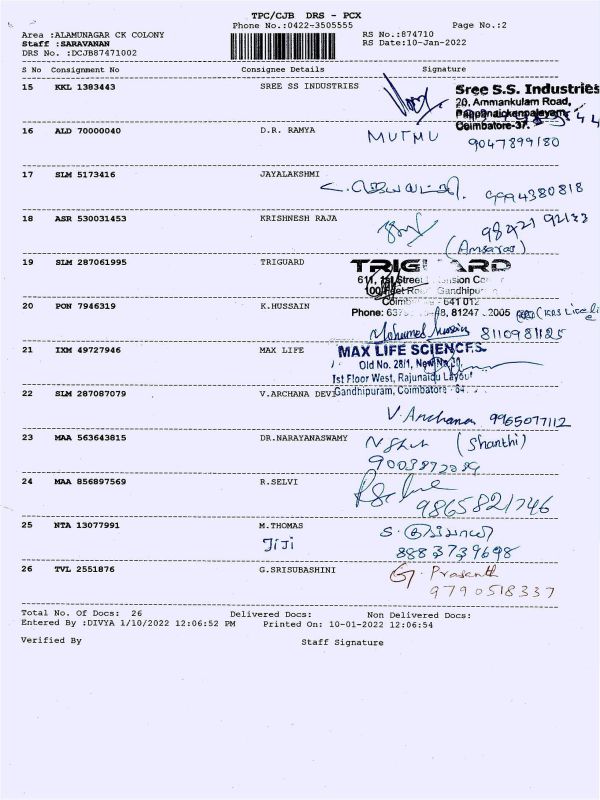 TPC/CJB DRS - PCX
Phone No.:0422-3505555 Page No.:2
Area :ALAMUNAGAR CK COLONY RS No.:874710
Staff :SARAVANAN RS Date:10-Jan-2022
DRS No. :DCJB87471002
S No Consignment No Consignee Details Signature
15 KKL 1383443 SREE SS INDUSTRIES
Sree S.S. Industries
20, Ammankulam Road,
Pappanaickenpalayam,
Coimbatore-37.
16 ALD 70000040 D.R. RAMYA MUTMU
9047899180
17 SLM 5173416 JAYALAKSHMI
9994380818
18 ASR 530031453 KRISHNESH RAJA
19 SLM 287061995 TRIGUARD
TRIGUARD
611, 1st Street
100 Feet Gandhipu
641 012
Phone: 81247 2005
20 PON 7946319 K.HUSSAIN
Mohamed Hussain 8110981125
21 IXM 49727946 MAX LIFE
MAX LIFE SCIENCES
Old No. 28/1, New No.
1st Floor West, Rajunaidu Layout
Gandhipuram, Coimbatore
22 SLM 287087079 V.ARCHANA DEVI
V. Archana 9965077112
23 MAA 563643815 DR.NARAYANASWAMY (Shanthi)
24 MAA 856897569 R.SELVI
9865821746
25 NTA 13077991 M.THOMAS
JIJI 8883739698
26 TVL 2551876 G.SRISUBASHINI G. Prasanth
9790518337
Total No. Of Docs: 26 Delivered Docs: Non Delivered Docs:
Entered By :DIVYA 1/10/2022 12:06:52 PM Printed On: 10-01-2022 12:06:54
Verified By Staff Signature